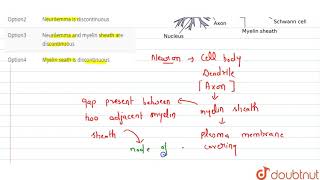 Option2 Neurilemma is discontinuous
Option3 Neurilemma and myelin sheath are discontinuous
Option4 Myelin seath is discontinuous
Axon
Schwann cell
Myelin sheath
Nucleus
Neuron → Cell body
Dendrite
[Axon]
gap present between
two adjacent myelin
sheath
myelin sheath
Plasma membrane
covering
node of
doubtnut